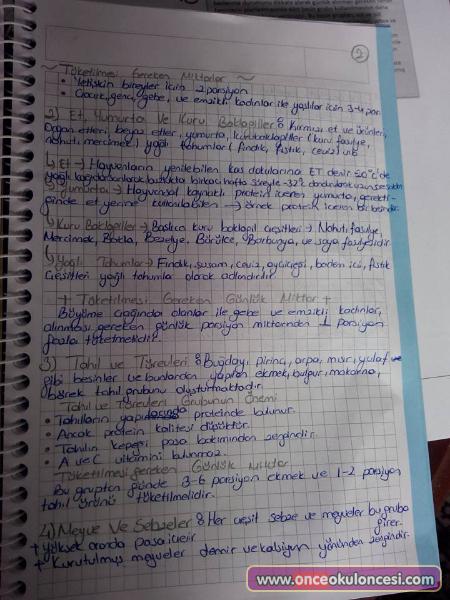 2
~ Tüketilmesi Gereken Miktarlar ~
• Yetişkin bireyler için 2 porsiyon
• Çocuk, genç, gebe, ve emzikli kadınlar ile yaşlılar için 3-4 por
2) Et, Yumurta Ve Kuru Baklagiller : Kırmızı et ve ürünleri,
beyaz etler, yumurta, kurubaklagiller (kuru fasulye,
nohut, mercimek) yağlı tohumlar (fındık, fıstık, ceviz) vb
Et → Hayvanların yenilebilen kas dokularına ET denir
Yumurta → Hayvansal kaynaklı protein içeren yumurta,
et yerine kullanılabilen → örnek protein içeren bir besindir.
Kuru Baklagiller → Başlıca kuru baklagil çeşitleri → Nohut, fasulye,
Mercimek, Bakla, Bezelye, Börülce, Barbunya, ve soya fasulyesidir.
Yağlı Tohumlar → Fındık, susam, ceviz, ayçiçeği, badem içi, fıstık
Çeşitleri yağlı tohumlar olarak adlandırılır.
+ Tüketilmesi Gereken Günlük Miktar +
Büyüme çağında olanlar ile gebe ve emzikli kadınlar,
alınması gereken günlük porsiyon miktarından 1 porsiyon
fazla tüketmelidir.
3) Tahıl ve Türevleri : Buğday, pirinç, arpa, mısır, yulaf ve
gibi besinler ve bunlardan yapılan ekmek, bulgur, makarna,
börek tahıl grubunu oluşturmaktadır.
Tahıl ve Türevleri Grubunun Önemi
• Tahılların yapılarında proteinde bulunur.
• Ancak protein kalitesi düşüktür.
• Tahılın kepeği posa bakımından zengindir.
• A ve C vitamini bulunmaz.
Tüketilmesi gereken Günlük Miktar
Bu gruptan günde 3-6 porsiyon ekmek ve 1-2 porsiyon
tahıl ürünü tüketilmelidir.
4) Meyve Ve Sebzeler : Her çeşit sebze ve meyveler bu gruba
girer.
+ Yüksek oranda posa içerir
+ Kurutulmuş meyveler demir ve kalsiyum yönünden zengindir.
www.onceokuloncesi.com